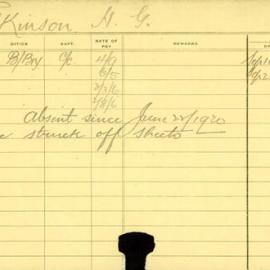 Kinson. H. G.
OFFICE CAPT. RATE OF PAY REMARKS
B/Bry 4/9
6/5
7/3/6
1/8/6
Absent since June 22/1920
struck off sheets